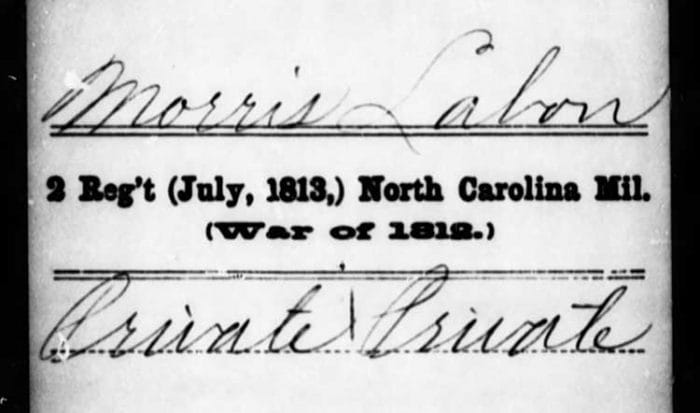 Morris Labon
2 Reg't (July, 1813,) North Carolina Mil.
(War of 1812.)
Private | Private